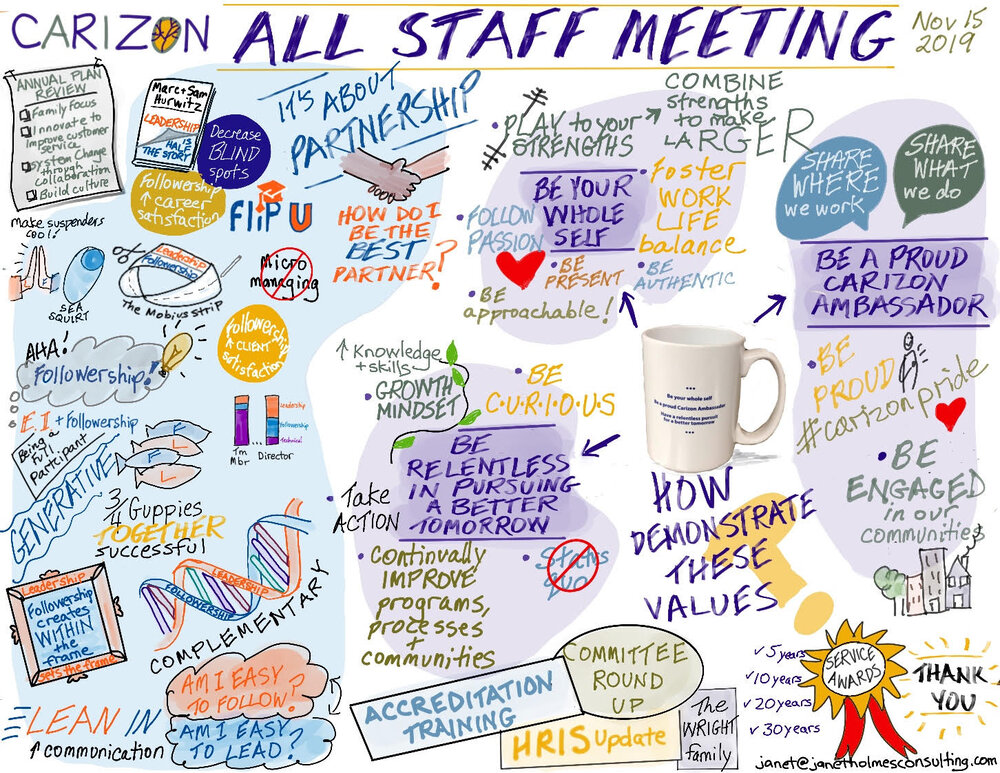 CARIZON
ALL STAFF MEETING
Nov 15
2019
ANNUAL PLAN
REVIEW
Family Focus
Innovate to
Improve customer
service
System Change
through
collaboration
Build culture
Marc + Sam
Hurwitz
LEADERSHIP
IS
HALF
THE STORY
Decrease
BLIND
spots
Followership
↑ career
satisfaction
FliP U
IT'S ABOUT
PARTNERSHIP
HOW DO I
BE THE
BEST
PARTNER?
make suspenders
cool!
SEA
SQUIRT
Leadership
Followership
The Mobius Strip
Micro
managing
AHA!
Followership!
Followership
↑ CLIENT
satisfaction
E.I + Followership
Being a
full
Participant
GENERATIVE
F
L
F
L
3/4 Guppies
TOGETHER
successful
Leadership
Followership
Technical
Tm
Mbr
Director
Leadership
Followership
creates
WITHIN
the
frame
sets the frame
LEADERSHIP
FOLLOWERSHIP
COMPLEMENTARY
LEAN IN
↑ communication
AM I EASY
TO FOLLOW?
AM I EASY
TO LEAD?
• PLAY to your
STRENGTHS
→ COMBINE
strengths
to make
LARGER
BE YOUR
WHOLE
SELF
• FOLLOW
PASSION
• Foster
WORK
LIFE
balance
• BE
PRESENT
• BE
AUTHENTIC
• BE
approachable!
SHARE
WHERE
we work
SHARE
WHAT
we do
BE A PROUD
CARIZON
AMBASSADOR
• BE
PROUD
#carizonpride
• BE
ENGAGED
in our
communities
Be your whole self
Be a proud Carizon Ambassador
Have a relentless pursuit
for a better tomorrow
HOW
DEMONSTRATE
THESE
VALUES
↑ Knowledge
+ skills
• GROWTH
MINDSET
• BE
C•U•R•I•O•U•S
BE
RELENTLESS
IN PURSUING
A BETTER
TOMORROW
• Take
ACTION
• CONTINUALLY
IMPROVE
programs,
processes
+
communities
• Status
Quo
ACCREDITATION
TRAINING
COMMITTEE
ROUND
UP
HRIS update
The
WRIGHT
family
✓ 5 years
✓ 10 years
✓ 20 years
✓ 30 years
SERVICE
AWARDS
THANK
YOU
janet@janetholmesconsulting.com